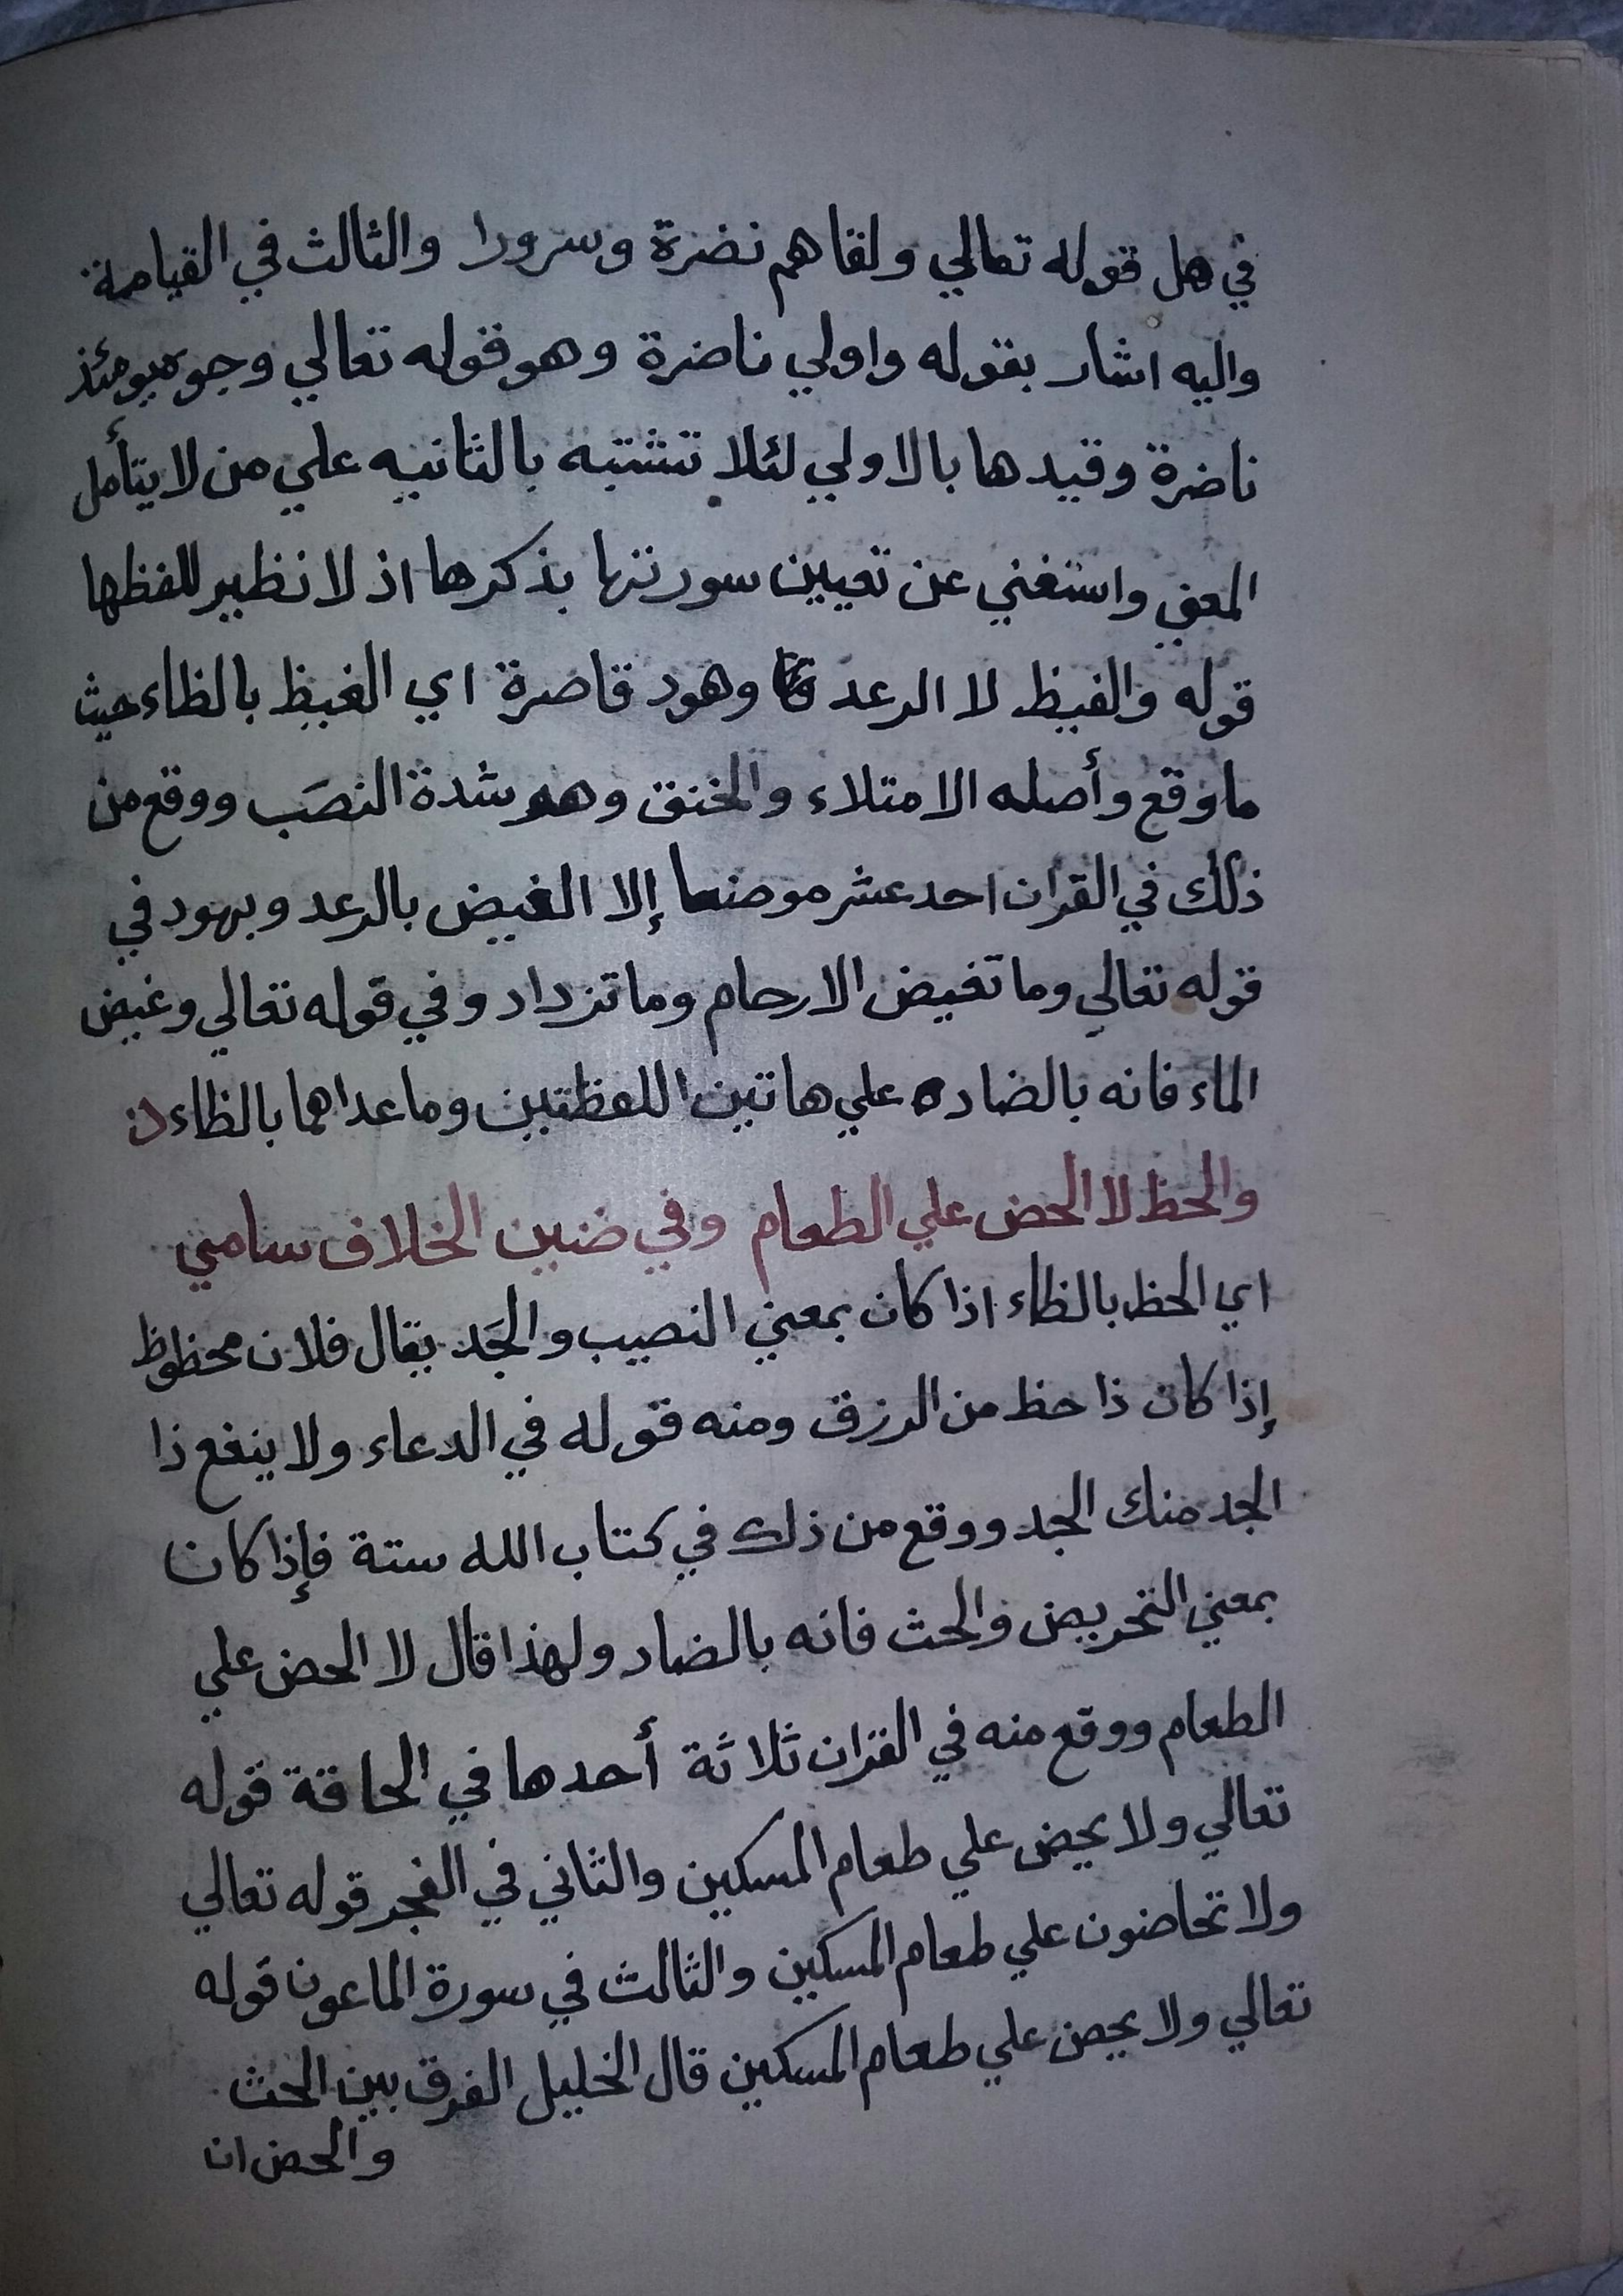 في هل قوله تعالي ولقاهم نضرة وسرورا والثالث في القيامة
واليه اشار بقوله واولي ناضرة وهو قوله تعالي وجوه يومئذ
ناضرة وقيدها بالاولي لئلا تشتبه بالثانيه علي من لا يتأمل
المعني واستغني عن تعيين سورتها بذكرها اذ لا نظير للفظها
قوله والغيظ لا الرعد وهود قاصرة اي الغيظ بالظاء حيث
ما وقع وأصله الامتلاء والخنق وهو شدة النصَب ووقع من
ذلك في القران احد عشر موضعا إلا الغيض بالرعد وبهود في
قوله تعالي وما تغيض الارحام وما تزداد وفي قوله تعالي وغيض
الماء فانه بالضاد علي هاتين اللفظتين وما عداهما بالظاء
والحظ لا الحض علي الطعام وفي ضنين الخلاف سامي
اي الحظ بالظاء اذا كان بمعني النصيب والجَد يقال فلان محظوظ
إذا كان ذا حظ من الرزق ومنه قوله في الدعاء ولا ينفع ذا
الجد منك الجد ووقع من ذلك في كتاب الله ستة فإذا كان
بمعني التحريض والحث فانه بالضاد ولهذا قال لا الحض علي
الطعام ووقع منه في القران ثلاثة أحدها في الحاقة قوله
تعالي ولا يحض علي طعام المسكين والثاني في الفجر قوله تعالي
ولا تحاضون علي طعام المسكين والثالث في سورة الماعون قوله
تعالي ولا يحض علي طعام المسكين قال الخليل الفرق بين الحث
والحض ان